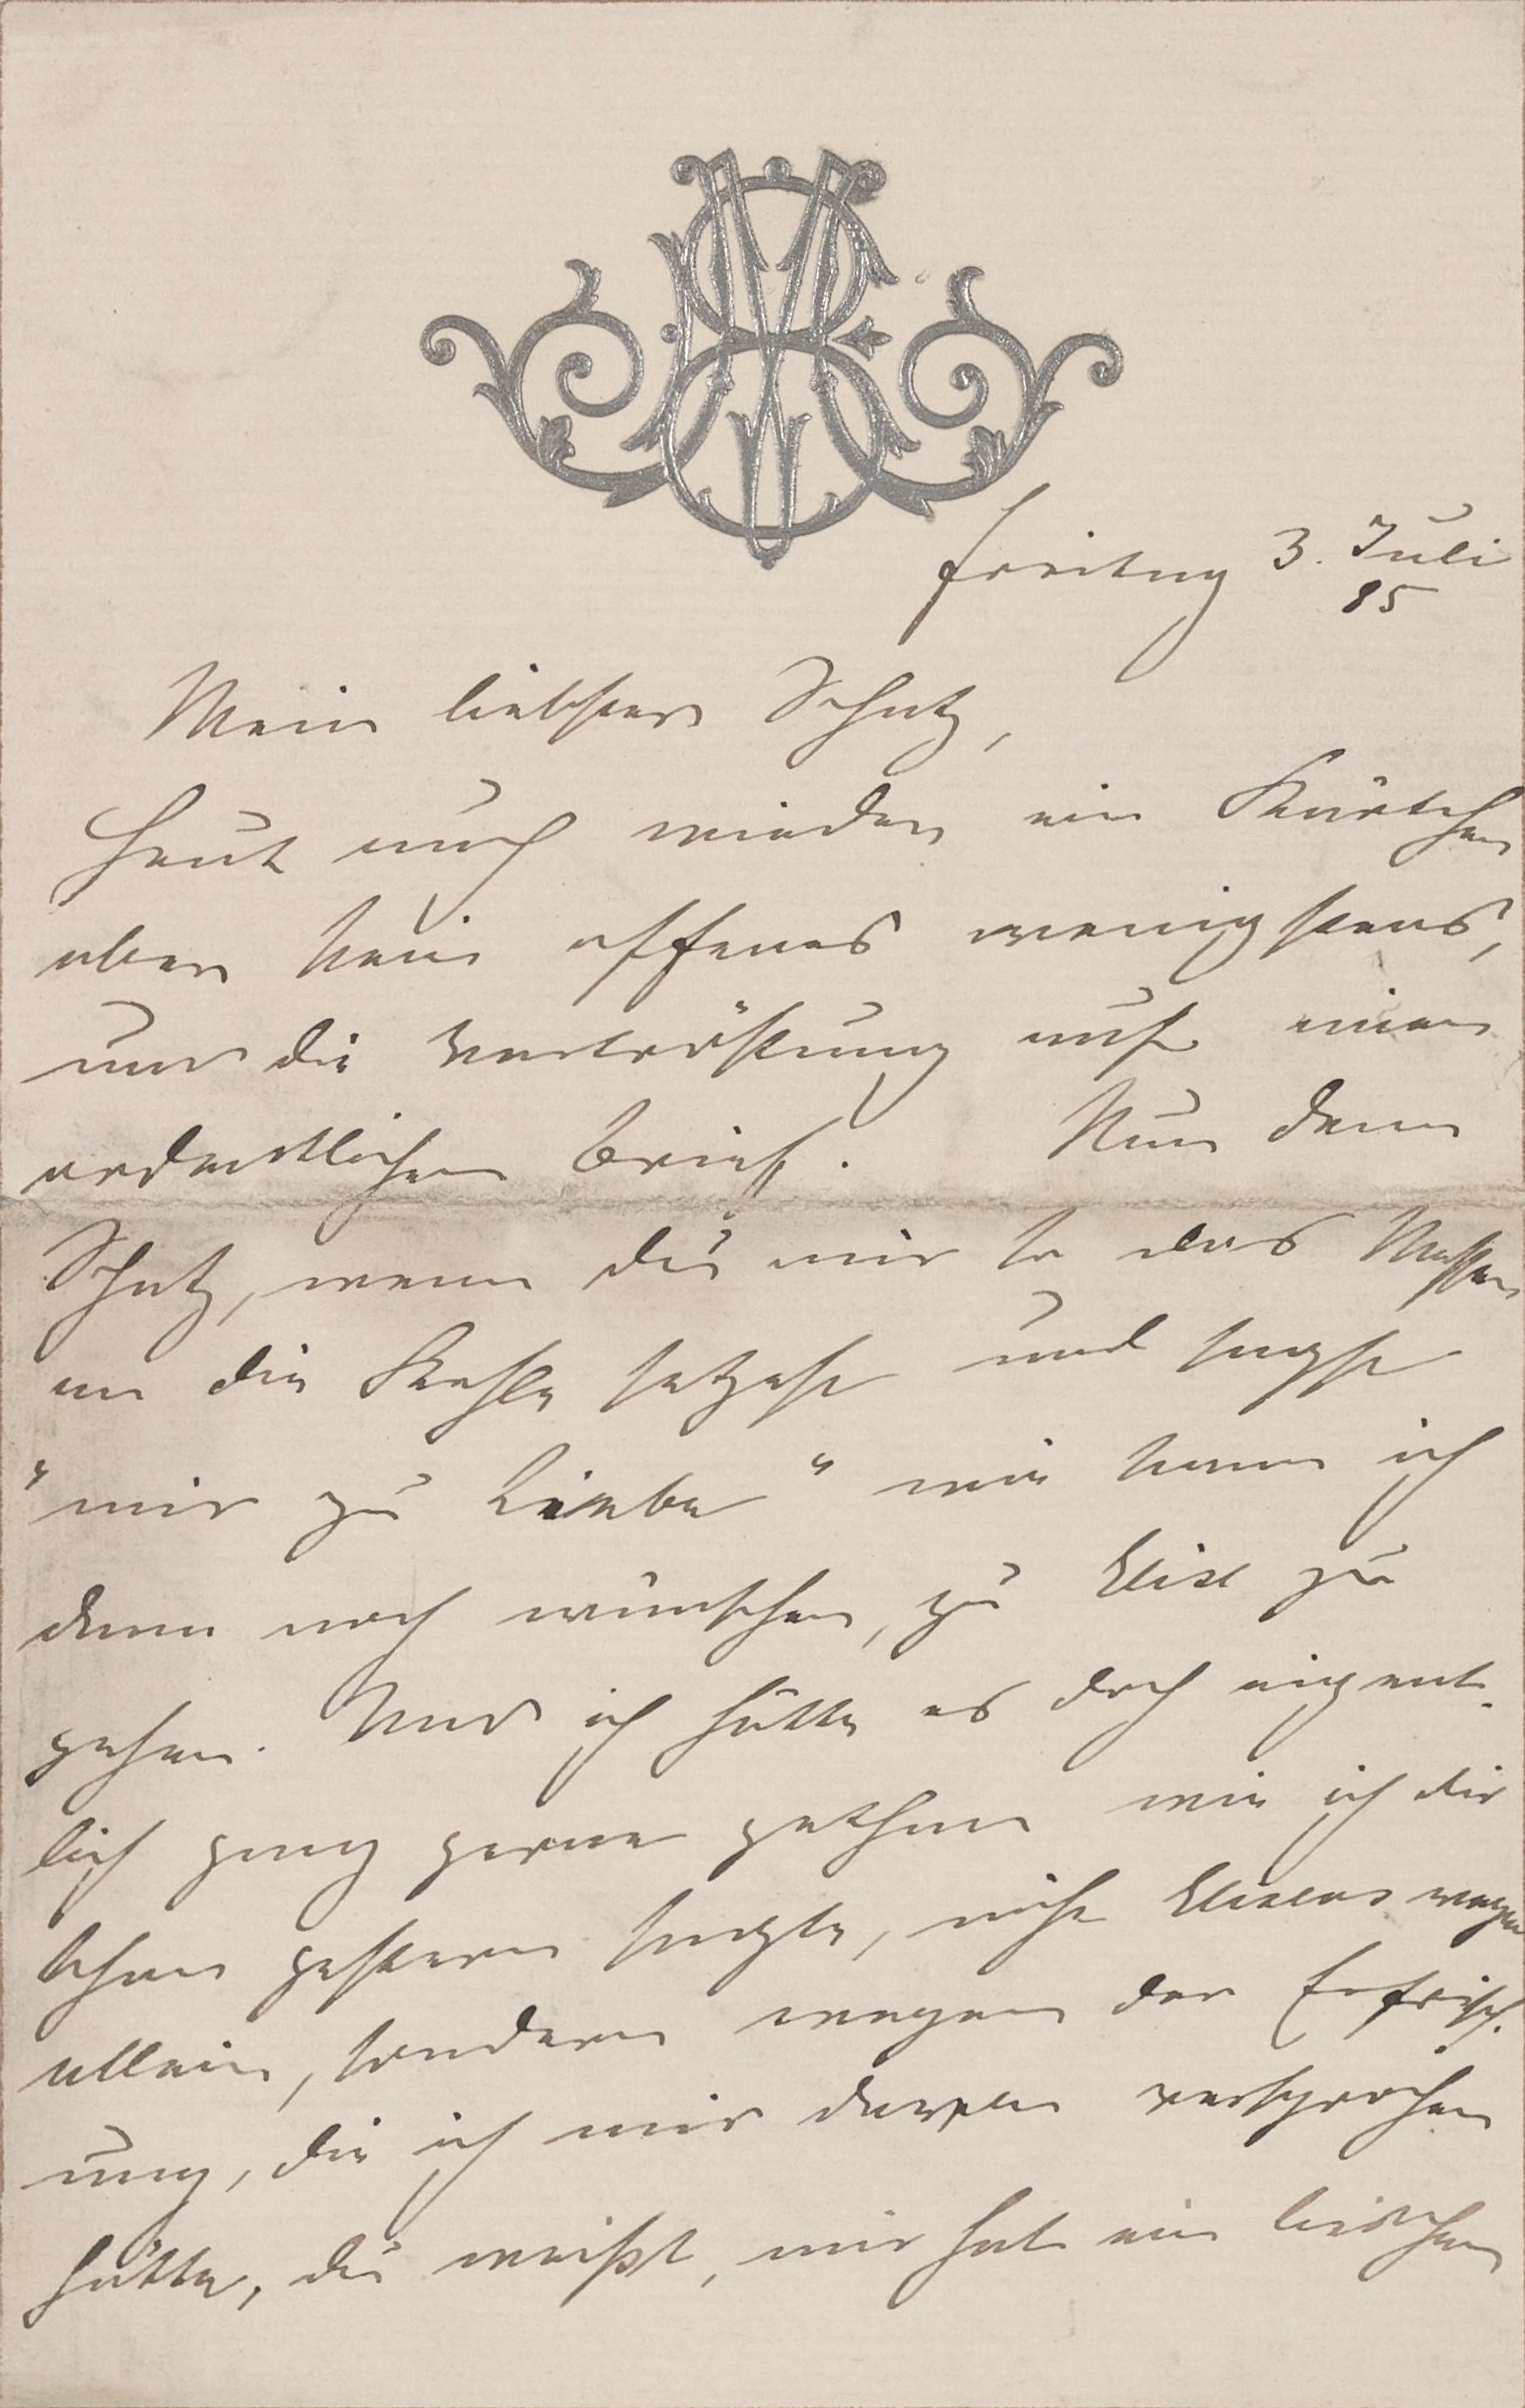 Freitag 3. Juli
85
Mein liebster Schatz,
Heut auch wieder ein Kärtchen
aber kein offenes wenigstens,
nur die Vertröstung auf einen
ordentlichen Brief. Nun denn
Schatz, wenn du mir so das Messer
an die Kehle setzest und sagst
"mir zu Liebe" wie kann ich
dann noch wünschen, zu Elise zu
gehen. Und ich hätte es doch eigent-
lich ganz gerne gethan wie ich dir
schon gestern sagte, nicht Elisens wegen
allein, sondern wegen der Erfrisch-
ung, die ich mir davon versprochen
hätte, du weißt, mir hat ein bischen